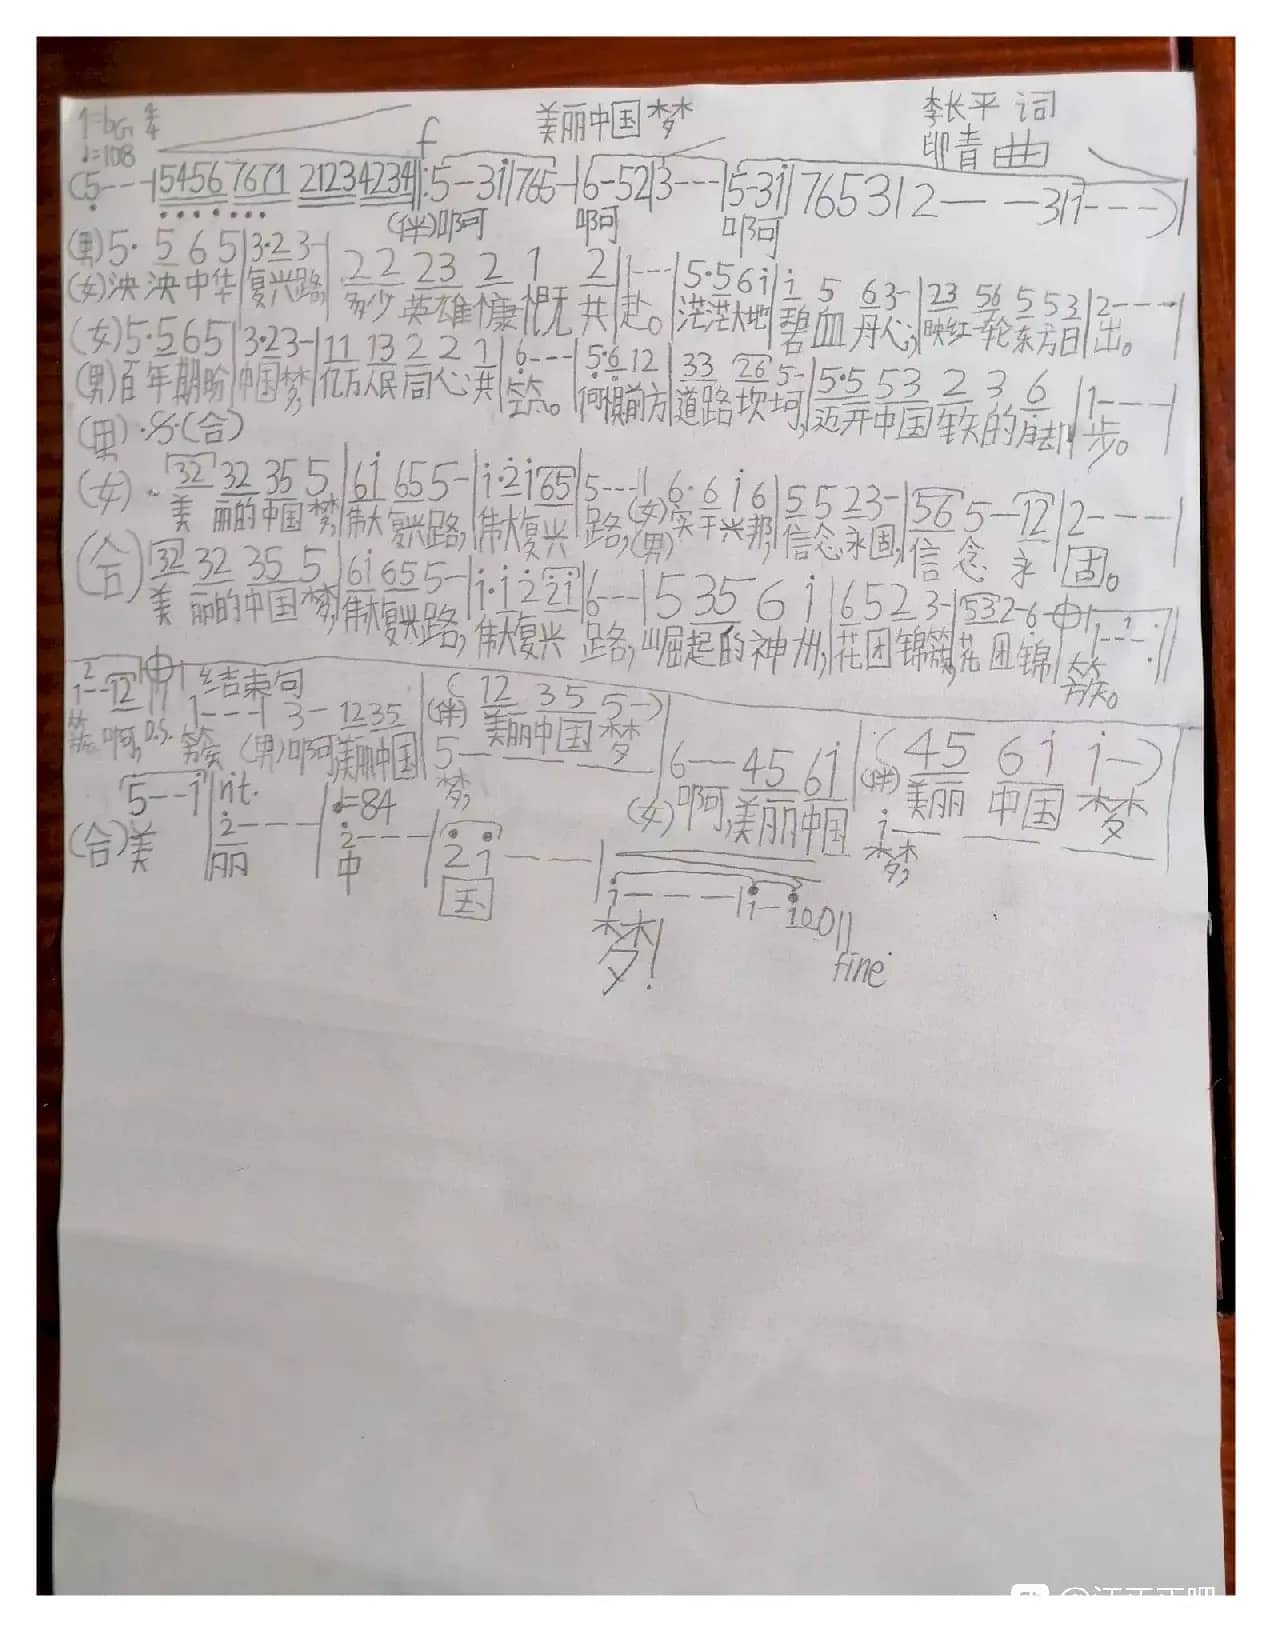 美丽中国梦 李长平 词
1=bG 4/4
♩=108 印青 曲
f
(5---|5456 7671 2123 4234‖:5-3i|765-|6-52|3---|5-3i|7653|2---3|1---)|
(伴)啊 啊 啊
(男)5· 5 6 5|3·2 3-|2 2 23 2 1 2|1---|5·5 6 i|i 5 6 3-|23 56 5 53|2---|
(女)泱 泱 中 华 复兴路, 多少 英雄 慷 慨 共 赴。 茫茫大地 碧 血 丹 心, 映红 一轮 东方日 出。
(女)5·5 6 5|3·2 3-|11 13 2 2 1|6---|5·6 12|33 26 5-|5·5 53 2 3 6|1---|
(男)百年期盼 中国梦, 亿万人民同心共 筑。 何惧前方 道路坎坷, 迈开中国 铁的脚 步。
(男)·𝄋·(合)
(女) 32 32 35 5|6i 65 5-|i·2 i 65|5---|6·6 i 6|5 5 2 3-|56 5-12|2---|
美 丽的中国梦, 伟大复兴路, 伟大复兴 路, (女)(男)实干兴邦, 信念永固, 信 念 永 固。
(合) 32 32 35 5|6i 65 5-|i·i 2 2i|6---|5 35 6 i|6 5 2 3-|53 2-6|1---:|
美 丽的中国梦, 伟大复兴路, 伟大复兴 路, 崛起的神州, 花团锦簇, 花团锦 簇。
2 结束句 (12 35 5-)
1--12 | 1---|3-12 35| (伴)美丽中国 梦 (45 6i i-)
簇 啊, D.S. 簇 (男)啊,美丽中国 5--- 6--45 6i (伴)美丽 中国 梦
梦, (女)啊,美丽中国 i---
5--i|rit. ♩=84 梦,
2---|2---|2 1--|i---|i-i00‖
(合)美 丽 中 国 梦! fine